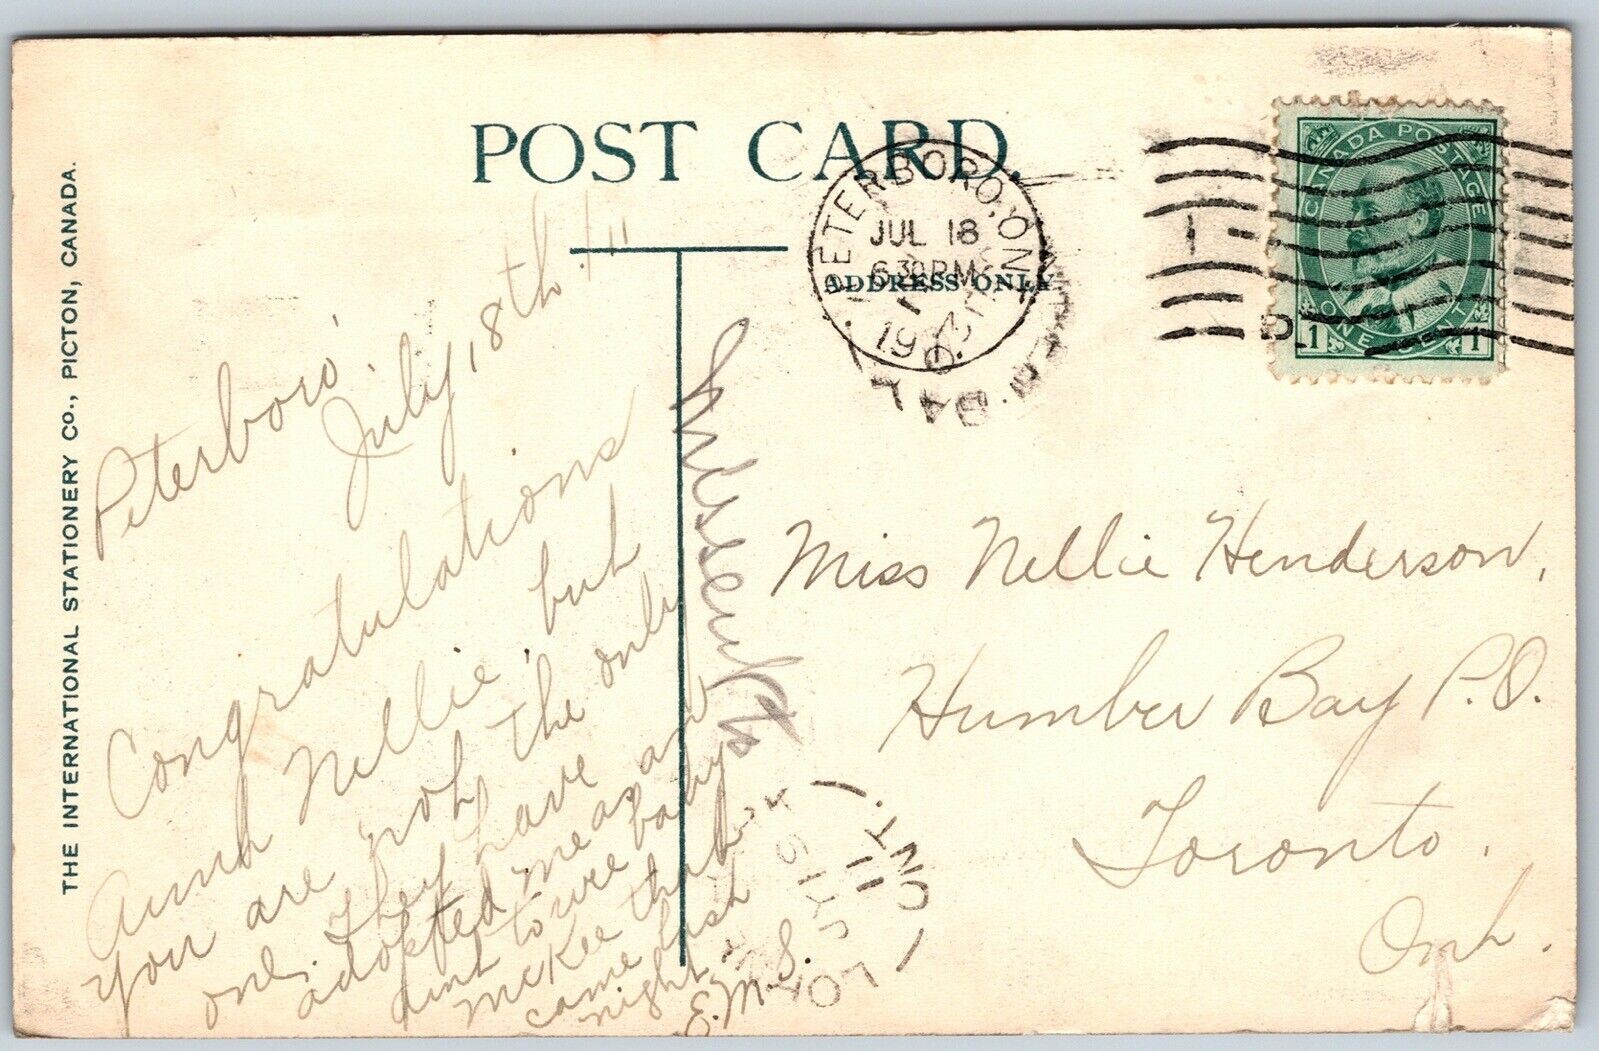 POST CARD.
ADDRESS ONLY
THE INTERNATIONAL STATIONERY Co., PICTON, CANADA.
PETERBORO, ONT.
JUL 18
6 30 PM
CANADA POSTAGE
1 ONE CENT 1
Peterboro'
July, 18th. / 11
Congratulations
Aunt Nellie, but
you are not the only
one. They have
adopted me as an
aunt to wee baby
McKee that
came last
night
E.M.S.
Missent
Miss Nellie Henderson,
Humber Bay P.O.
Toronto.
Ont.
JY 19
11
ONT.